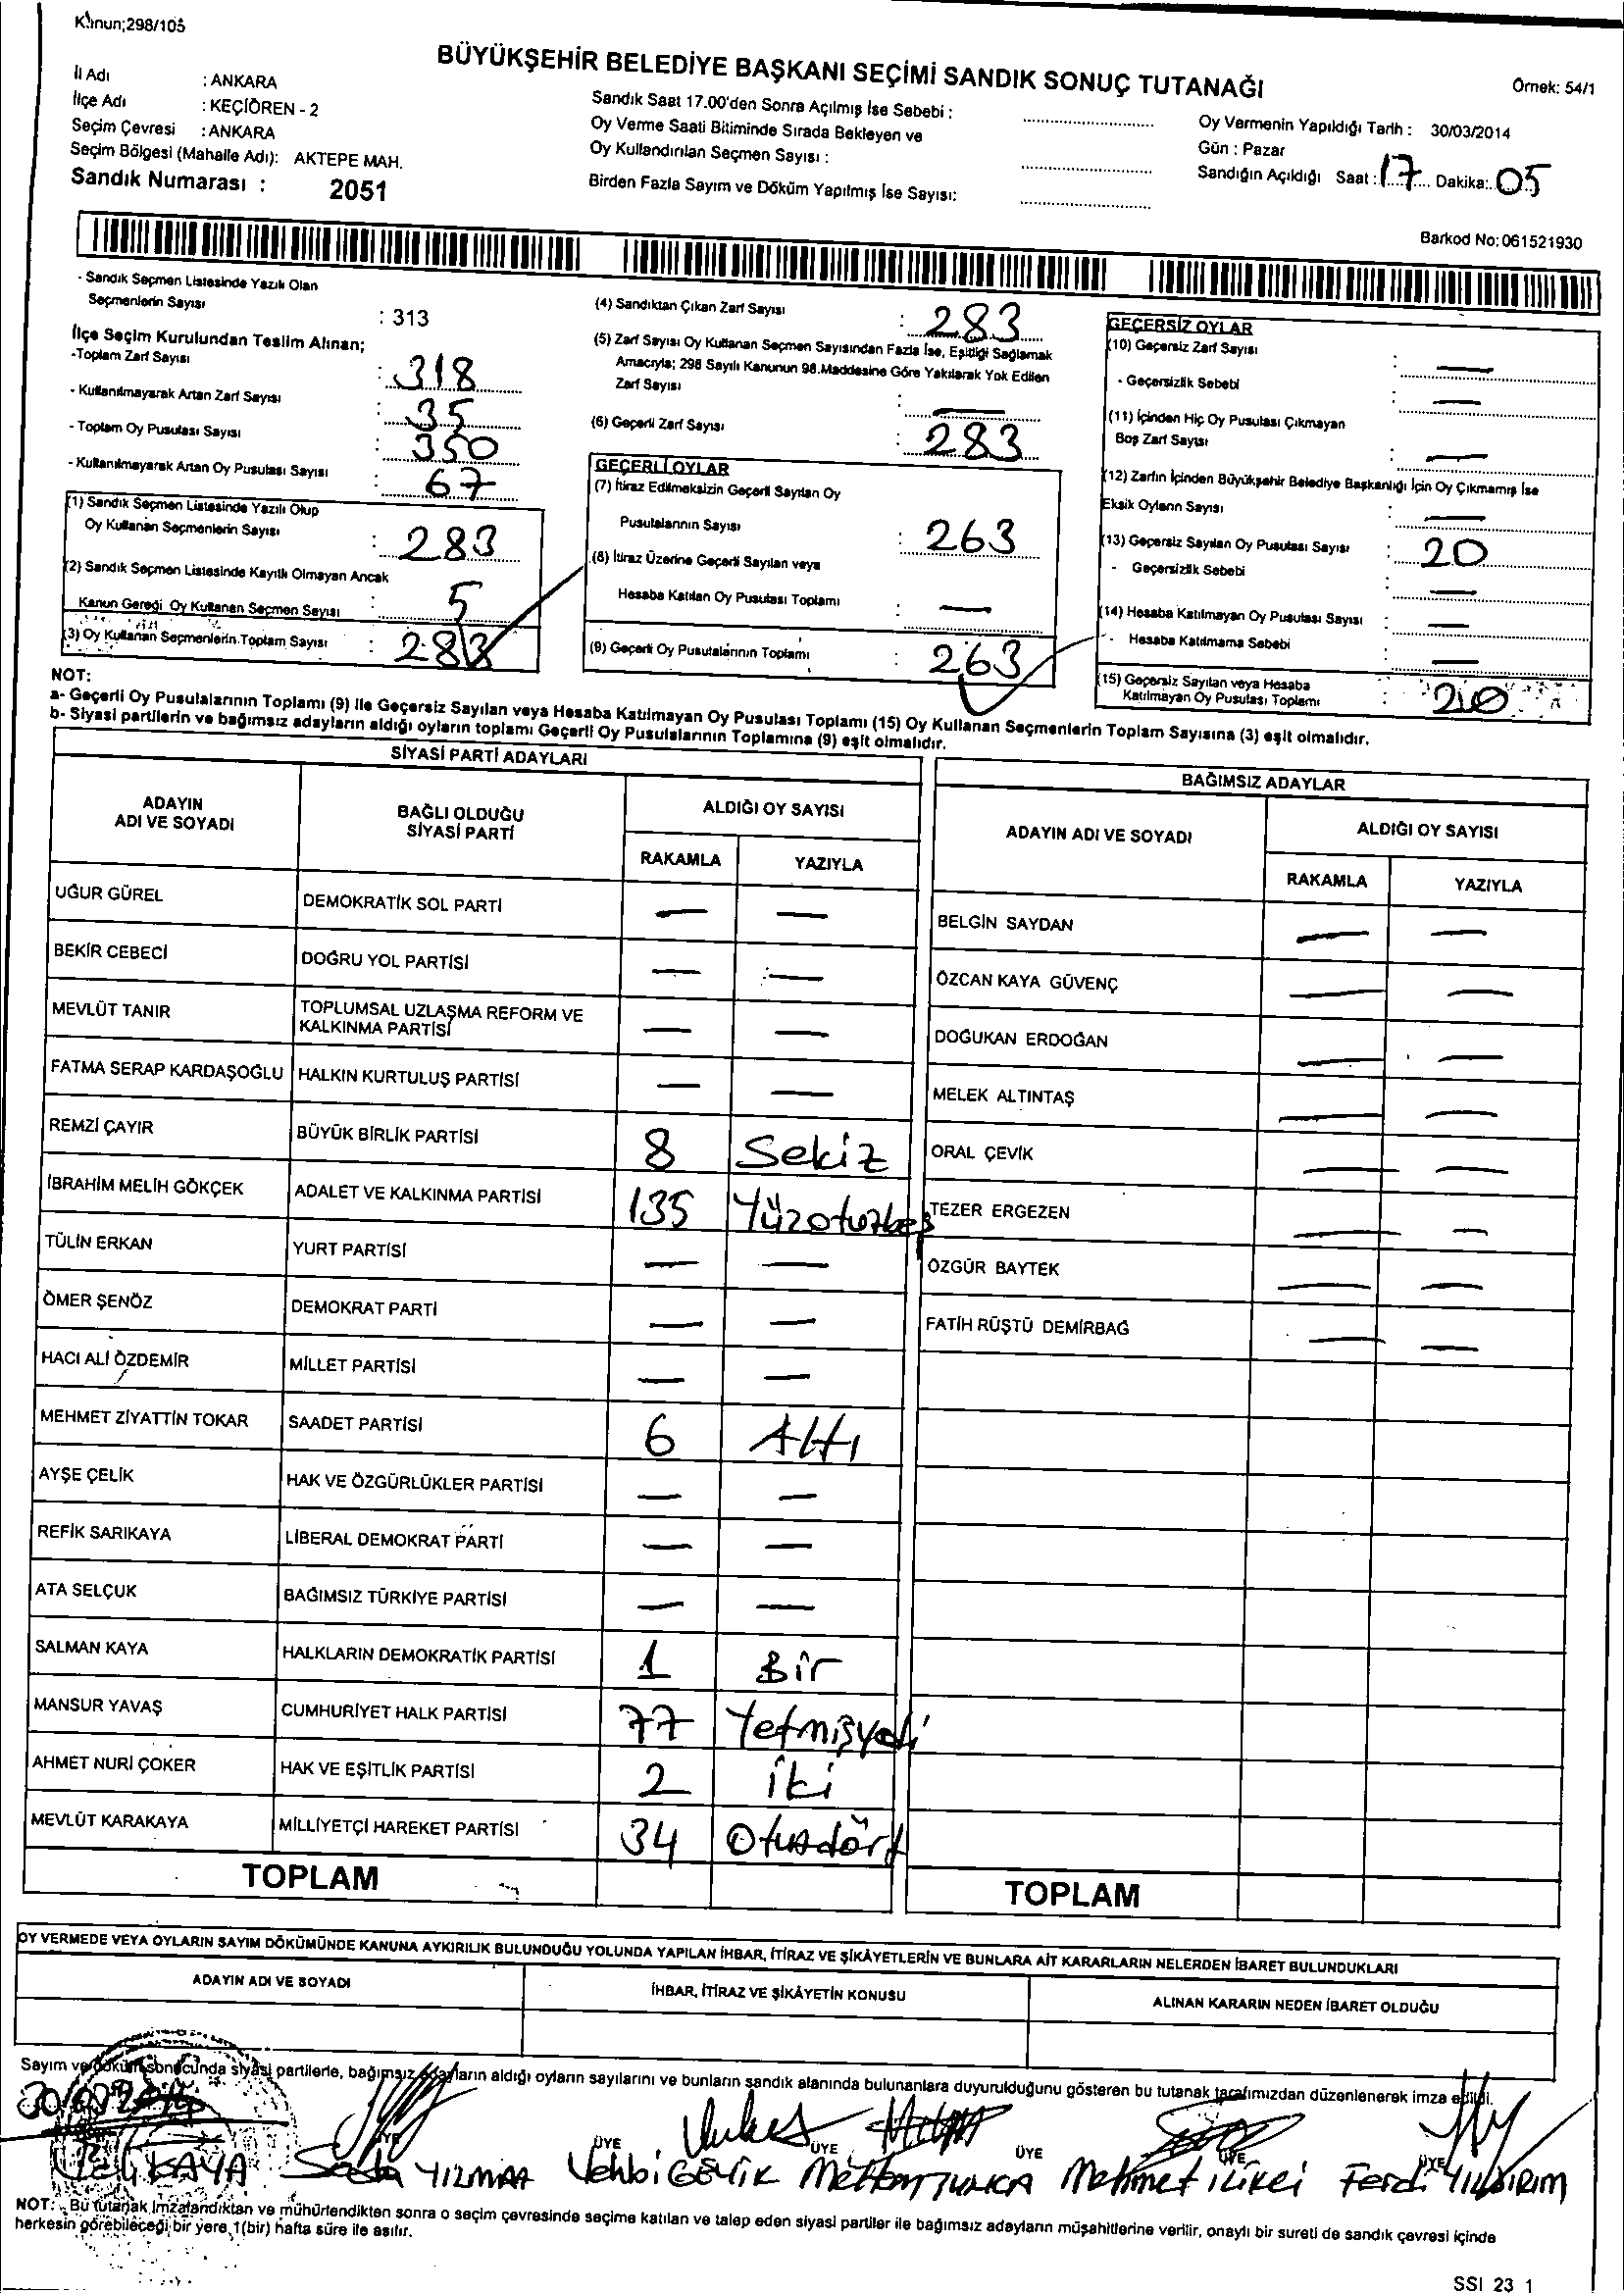 Kanun;298/105
BÜYÜKŞEHİR BELEDİYE BAŞKANI SEÇİMİ SANDIK SONUÇ TUTANAĞI
Örnek: 54/1
İl Adı : ANKARA
İlçe Adı : KEÇİÖREN - 2
Seçim Çevresi : ANKARA
Seçim Bölgesi (Mahalle Adı): AKTEPE MAH.
Sandık Numarası : 2051
Sandık Saat 17.00'den Sonra Açılmış İse Sebebi :
Oy Verme Saati Bitiminde Sırada Bekleyen ve
Oy Kullandırılan Seçmen Sayısı :
Birden Fazla Sayım ve Döküm Yapılmış İse Sayısı:
Oy Vermenin Yapıldığı Tarih : 30/03/2014
Gün : Pazar
Sandığın Açıldığı Saat : 17 Dakika: 05
Barkod No: 061521930
- Sandık Seçmen Listesinde Yazılı Olan
Seçmenlerin Sayısı : 313
İlçe Seçim Kurulundan Teslim Alınan;
-Toplam Zarf Sayısı : 318
- Kullanılmayarak Artan Zarf Sayısı : 35
- Toplam Oy Pusulası Sayısı : 350
- Kullanılmayarak Artan Oy Pusulası Sayısı : 67
(1) Sandık Seçmen Listesinde Yazılı Olup
Oy Kullanan Seçmenlerin Sayısı : 283
(2) Sandık Seçmen Listesinde Kayıtlı Olmayan Ancak
Kanun Gereği Oy Kullanan Seçmen Sayısı : 5
(3) Oy Kullanan Seçmenlerin Toplam Sayısı : 283
(4) Sandıktan Çıkan Zarf Sayısı : 283
(5) Zarf Sayısı Oy Kullanan Seçmen Sayısından Fazla İse, Eşitliği Sağlamak
Amacıyla; 298 Sayılı Kanunun 98.Maddesine Göre Yakılarak Yok Edilen
Zarf Sayısı : —
(6) Geçerli Zarf Sayısı : 283
GEÇERLİ OYLAR
(7) İtiraz Edilmeksizin Geçerli Sayılan Oy
Pusulalarının Sayısı : 263
(8) İtiraz Üzerine Geçerli Sayılan veya
Hesaba Katılan Oy Pusulası Toplamı : —
(9) Geçerli Oy Pusulalarının Toplamı : 263
GEÇERSİZ OYLAR
(10) Geçersiz Zarf Sayısı : —
- Geçersizlik Sebebi : —
(11) İçinden Hiç Oy Pusulası Çıkmayan
Boş Zarf Sayısı : —
(12) Zarfın İçinden Büyükşehir Belediye Başkanlığı İçin Oy Çıkmamış İse
Eksik Oyların Sayısı : —
(13) Geçersiz Sayılan Oy Pusulası Sayısı : 20
- Geçersizlik Sebebi : —
(14) Hesaba Katılmayan Oy Pusulası Sayısı : —
- Hesaba Katılmama Sebebi : —
(15) Geçersiz Sayılan veya Hesaba
Katılmayan Oy Pusulası Toplamı : 20
NOT:
a- Geçerli Oy Pusulalarının Toplamı (9) ile Geçersiz Sayılan veya Hesaba Katılmayan Oy Pusulası Toplamı (15) Oy Kullanan Seçmenlerin Toplam Sayısına (3) eşit olmalıdır.
b- Siyasi partilerin ve bağımsız adayların aldığı oyların toplamı Geçerli Oy Pusulalarının Toplamına (9) eşit olmalıdır.
SİYASİ PARTİ ADAYLARI
ADAYIN ADI VE SOYADI BAĞLI OLDUĞU SİYASİ PARTİ ALDIĞI OY SAYISI
RAKAMLA YAZIYLA
UĞUR GÜREL DEMOKRATİK SOL PARTİ — —
BEKİR CEBECİ DOĞRU YOL PARTİSİ — —
MEVLÜT TANIR TOPLUMSAL UZLAŞMA REFORM VE KALKINMA PARTİSİ — —
FATMA SERAP KARDAŞOĞLU HALKIN KURTULUŞ PARTİSİ — —
REMZİ ÇAYIR BÜYÜK BİRLİK PARTİSİ 8 Sekiz
İBRAHİM MELİH GÖKÇEK ADALET VE KALKINMA PARTİSİ 135 Yüzotuzbeş
TÜLİN ERKAN YURT PARTİSİ — —
ÖMER ŞENÖZ DEMOKRAT PARTİ — —
HACI ALİ ÖZDEMİR MİLLET PARTİSİ — —
MEHMET ZİYATTİN TOKAR SAADET PARTİSİ 6 Altı
AYŞE ÇELİK HAK VE ÖZGÜRLÜKLER PARTİSİ — —
REFİK SARIKAYA LİBERAL DEMOKRAT PARTİ — —
ATA SELÇUK BAĞIMSIZ TÜRKİYE PARTİSİ — —
SALMAN KAYA HALKLARIN DEMOKRATİK PARTİSİ 1 Bir
MANSUR YAVAŞ CUMHURİYET HALK PARTİSİ 77 Yetmişyedi
AHMET NURİ ÇOKER HAK VE EŞİTLİK PARTİSİ 2 iki
MEVLÜT KARAKAYA MİLLİYETÇİ HAREKET PARTİSİ 34 Otuzdört
TOPLAM
BAĞIMSIZ ADAYLAR
ADAYIN ADI VE SOYADI ALDIĞI OY SAYISI
RAKAMLA YAZIYLA
BELGİN SAYDAN — —
ÖZCAN KAYA GÜVENÇ — —
DOĞUKAN ERDOĞAN — —
MELEK ALTINTAŞ — —
ORAL ÇEVİK — —
TEZER ERGEZEN — —
ÖZGÜR BAYTEK — —
FATİH RÜŞTÜ DEMİRBAĞ — —
TOPLAM
OY VERMEDE VEYA OYLARIN SAYIM DÖKÜMÜNDE KANUNA AYKIRILIK BULUNDUĞU YOLUNDA YAPILAN İHBAR, İTİRAZ VE ŞİKÂYETLERİN VE BUNLARA AİT KARARLARIN NELERDEN İBARET BULUNDUKLARI
ADAYIN ADI VE SOYADI İHBAR, İTİRAZ VE ŞİKÂYETİN KONUSU ALINAN KARARIN NEDEN İBARET OLDUĞU
Sayım ve döküm sonucunda siyasi partilerle, bağımsız adayların aldığı oyların sayılarını ve bunların sandık alanında bulunanlara duyurulduğunu gösteren bu tutanak tarafımızdan düzenlenerek imza edildi.
ÜYE ÜYE ÜYE ÜYE ÜYE ÜYE
KAYA YILMAZ Vehbi Mehmet Ferdi YILDIRIM
NOT: Bu tutanak imzalandıktan ve mühürlendikten sonra o seçim çevresinde seçime katılan ve talep eden siyasi partiler ile bağımsız adayların müşahitlerine verilir, onaylı bir sureti de sandık çevresi içinde
herkesin görebileceği bir yere 1(bir) hafta süre ile asılır.
SSI 23 1